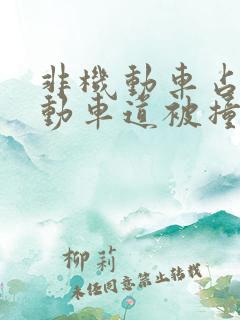 非機動車占
動車道被撞
柳莉
未经同意禁止转载